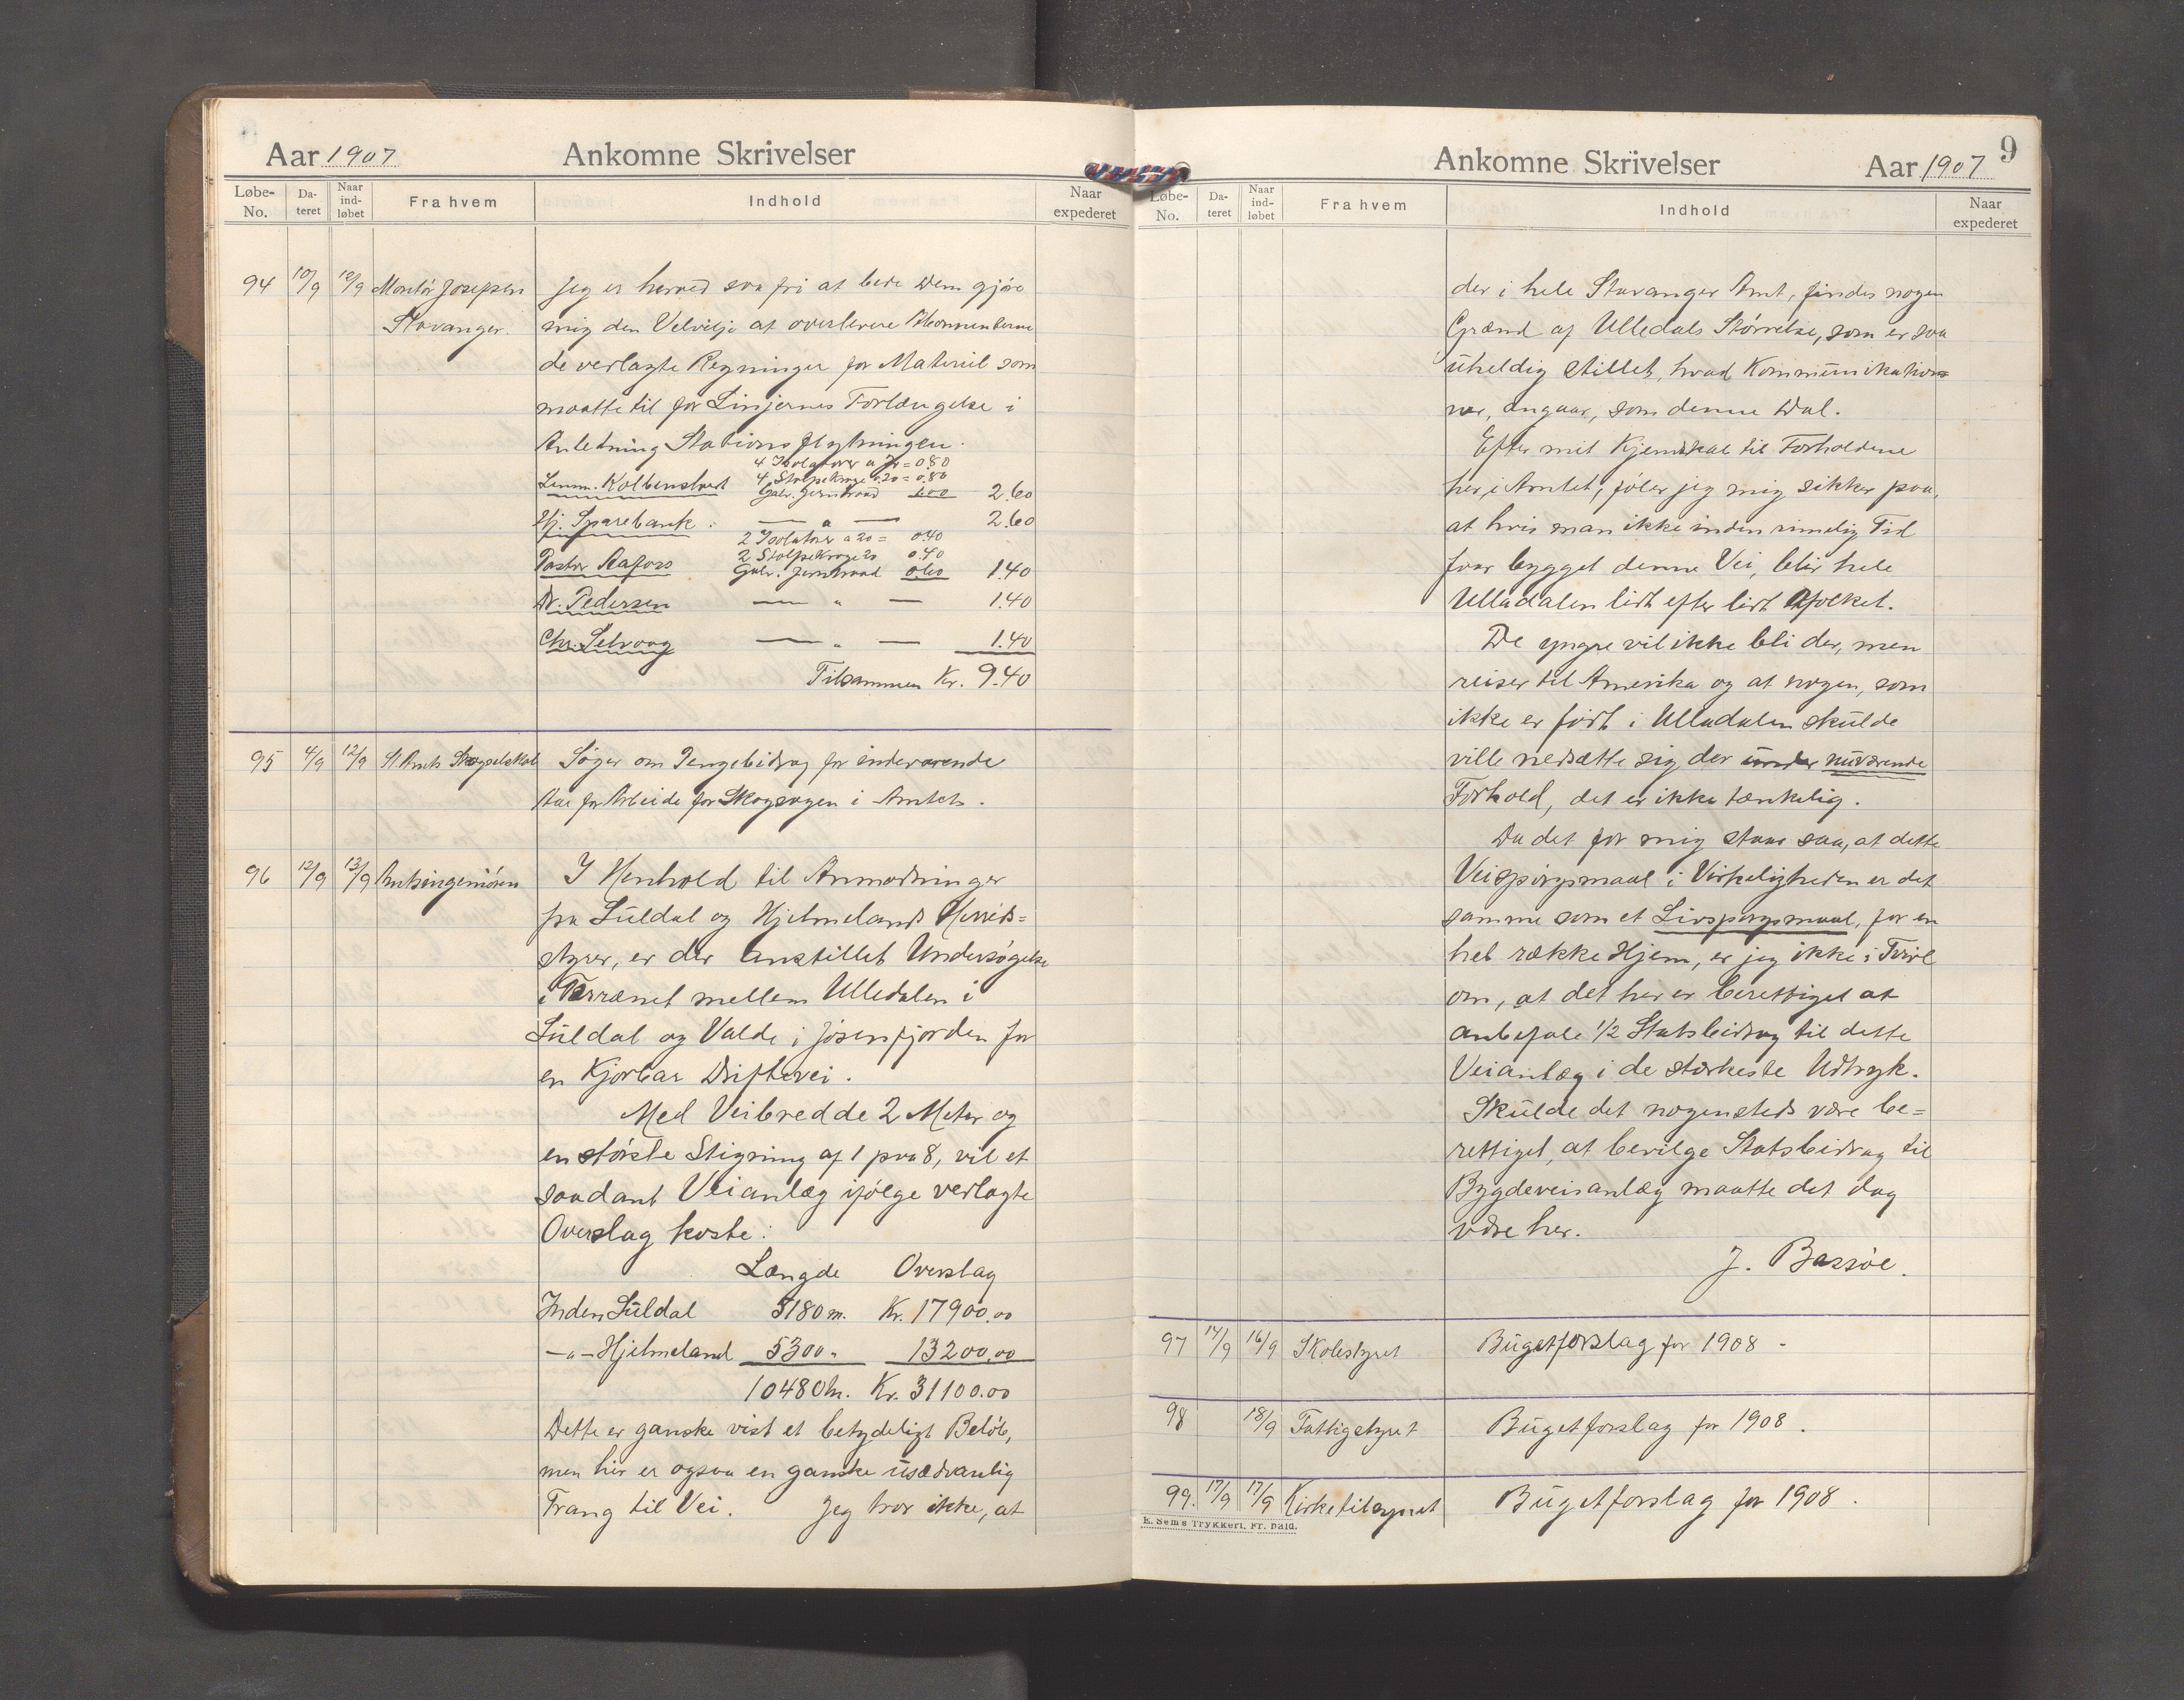 Aar 1907 Ankomne Skrivelser
Løbe-No. Da-teret Naar ind-løbet Fra hvem Indhold Naar expederet
94 10/9 12/9 Montør Josefsen Jeg er herved saa fri at bede Dem gjøre
Stavanger. mig den Velvilje at overlevere Abonnenterne
de verlagte Regninger for Materiel som
maatte til for Linjernes Forlængelse i
Anledning Stationsflytningen.
4 Isolatorer a 20 = 0.80
Lensm. Kolbenstvedt 4 Stolpekroge a 20 = 0.80
Galv. Jerntraad 1.00 2.60
Hj. Sparebank. — " — 2.60
2 Isolatorer a 20 = 0.40
2 Stolpekroge 20 0.40
Pastor Aafoss Galv. Jerntraad 0.60 1.40
Dr. Pedersen — " — 1.40
Chr. Selvaag — " — 1.40
Tilsammen Kr. 9.40
95 4/9 12/9 St. Amts Skogselskab Søger om Pengebidrag for indeværende
Aar for Arbeide for Skogsagen i Amtet.
96 12/9 13/9 Amtsingeniøren I Henhold til Anmodninger
fra Suldal og Hjelmelands Herreds=
styrer, er der anstillet Undersøgelse
i Terrænet mellem Ulledalen i
Suldal og Valde i Jøsenfjorden for
en Kjørbar Driftevei.
Med Veibredde 2 Meter og
en største Stigning af 1 paa 8, vil et
saadant Veianlæg ifølge verlagte
Overslag koste:
Længde Overslag
Inden Suldal 5180 m. Kr. 17900.00
—"— Hjelmeland 5300 " 13200.00
10480 m. Kr. 31100.00
Dette er ganske vist et betydeligt Beløb,
men her er ogsaa en ganske usædvanlig
Trang til Vei. Jeg tror ikke, at
Ankomne Skrivelser Aar 1907 9
Løbe-No. Da-teret Naar ind-løbet Fra hvem Indhold Naar expederet
der i hele Stavanger Amt, findes nogen
Grænd af Ulledals Størrelse, som er saa
uheldig stillet, hvad Kommunikation=
ner, angaar, som denne Dal.
Efter mit Kjendskab til Forholdene
her, i Amtet, føler jeg mig sikker paa,
at hvis man ikke inden rimelig Tid
faar bygget denne Vei, blir hele
Ulladalen lidt efter lidt affolket.
De yngre vil ikke bli der, men
reiser til Amerika og at nogen, som
ikke er født i Ulladalen skulde
ville nedsætte sig der under nuværende
Forhold, det er ikke tænkelig.
Da det for mig staar saa, at dette
Veispørgsmaal i Virkeligheden er det
samme som et Livspørgsmaal, for en
hel række Hjem, er jeg ikke i Tvivl
om, at det her er berettiget at
anbefale 1/2 Statsbidrag til dette
Veianlæg i de stærkeste Udtryk.
Skulde det nogensteds være be=
rettiget, at bevilge Statsbidrag til
Bygdeveisanlæg maatte det dog
være her.
J. Bassøe.
97 14/9 16/9 Skolestyret Bugetforslag for 1908 -
98 18/9 Fattigstyret Bugetforslag for 1908.
99. 17/9 17/9 Kirketilsynet Bugetforslag for 1908.
E. Sem's Trykkeri, Fr. hald.